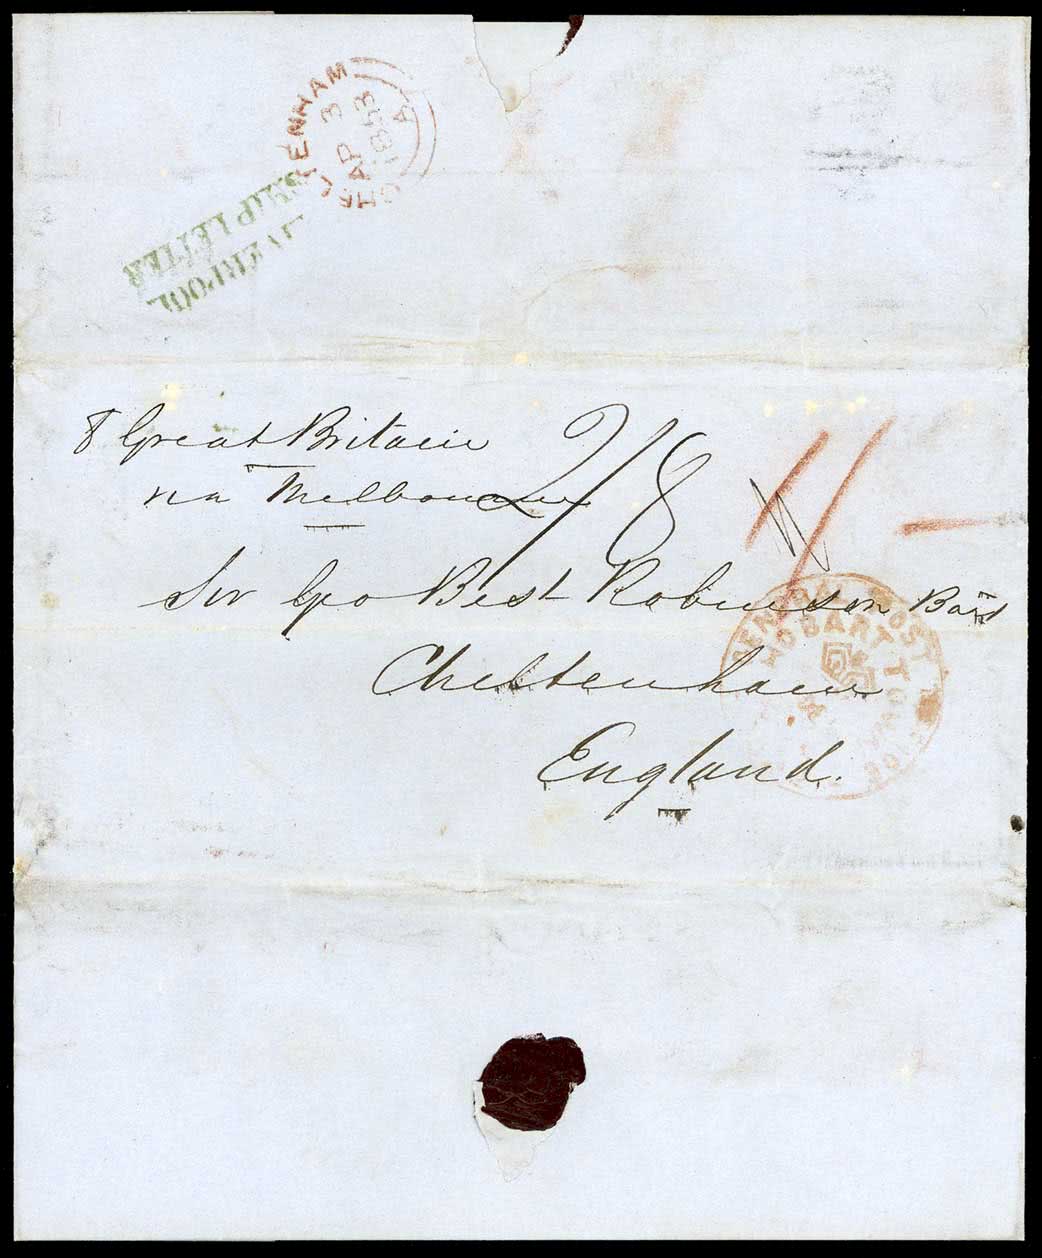 CHELTENHAM
AP 3
1853
A
LIVERPOOL
SHIP LETTER
Great Britain
via Melbourne
2/8
1/-
Sir Geo Best Robinson Bart
Cheltenham
England.
GENERAL POST OFFICE
HOBART TOWN